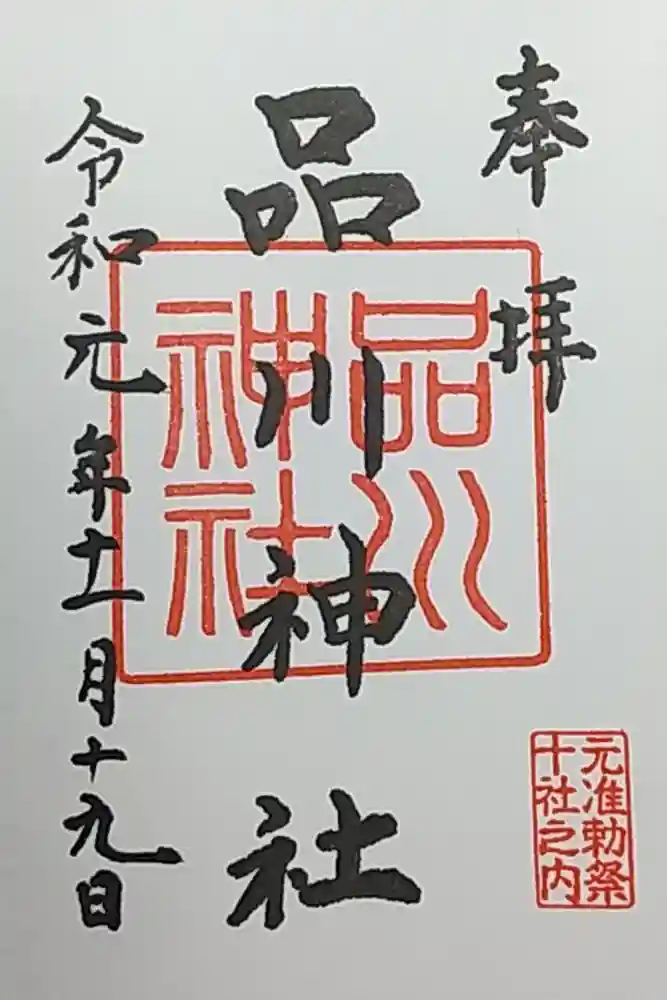 奉拝
品川神社
令和元年十一月十九日
品川
神社
元准勅祭
十社之内